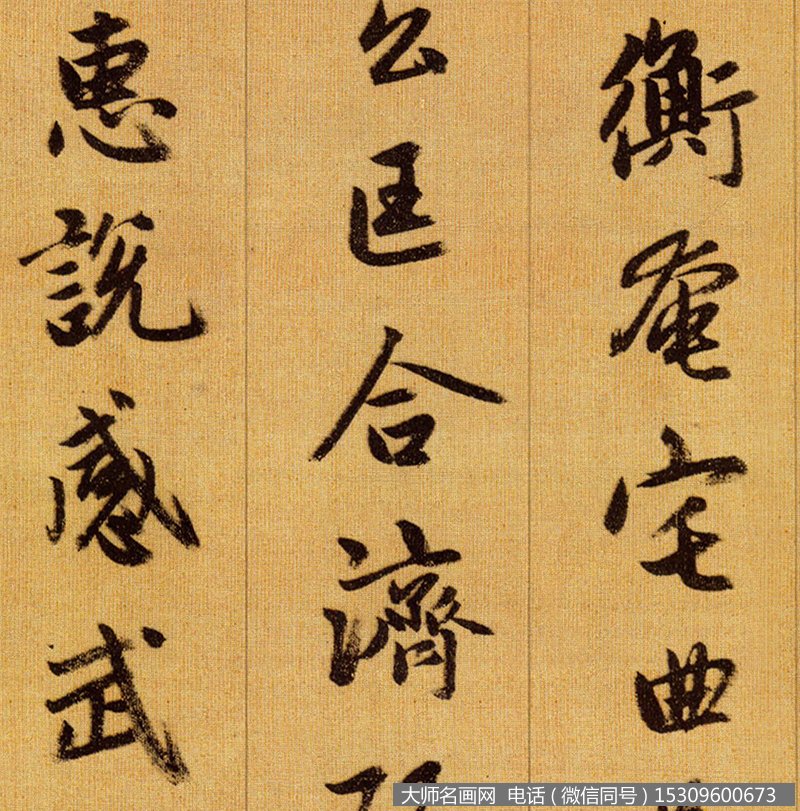 衡奄宅曲
公匡合濟
惠說感武
大师名画网 电话（微信同号）15309600673